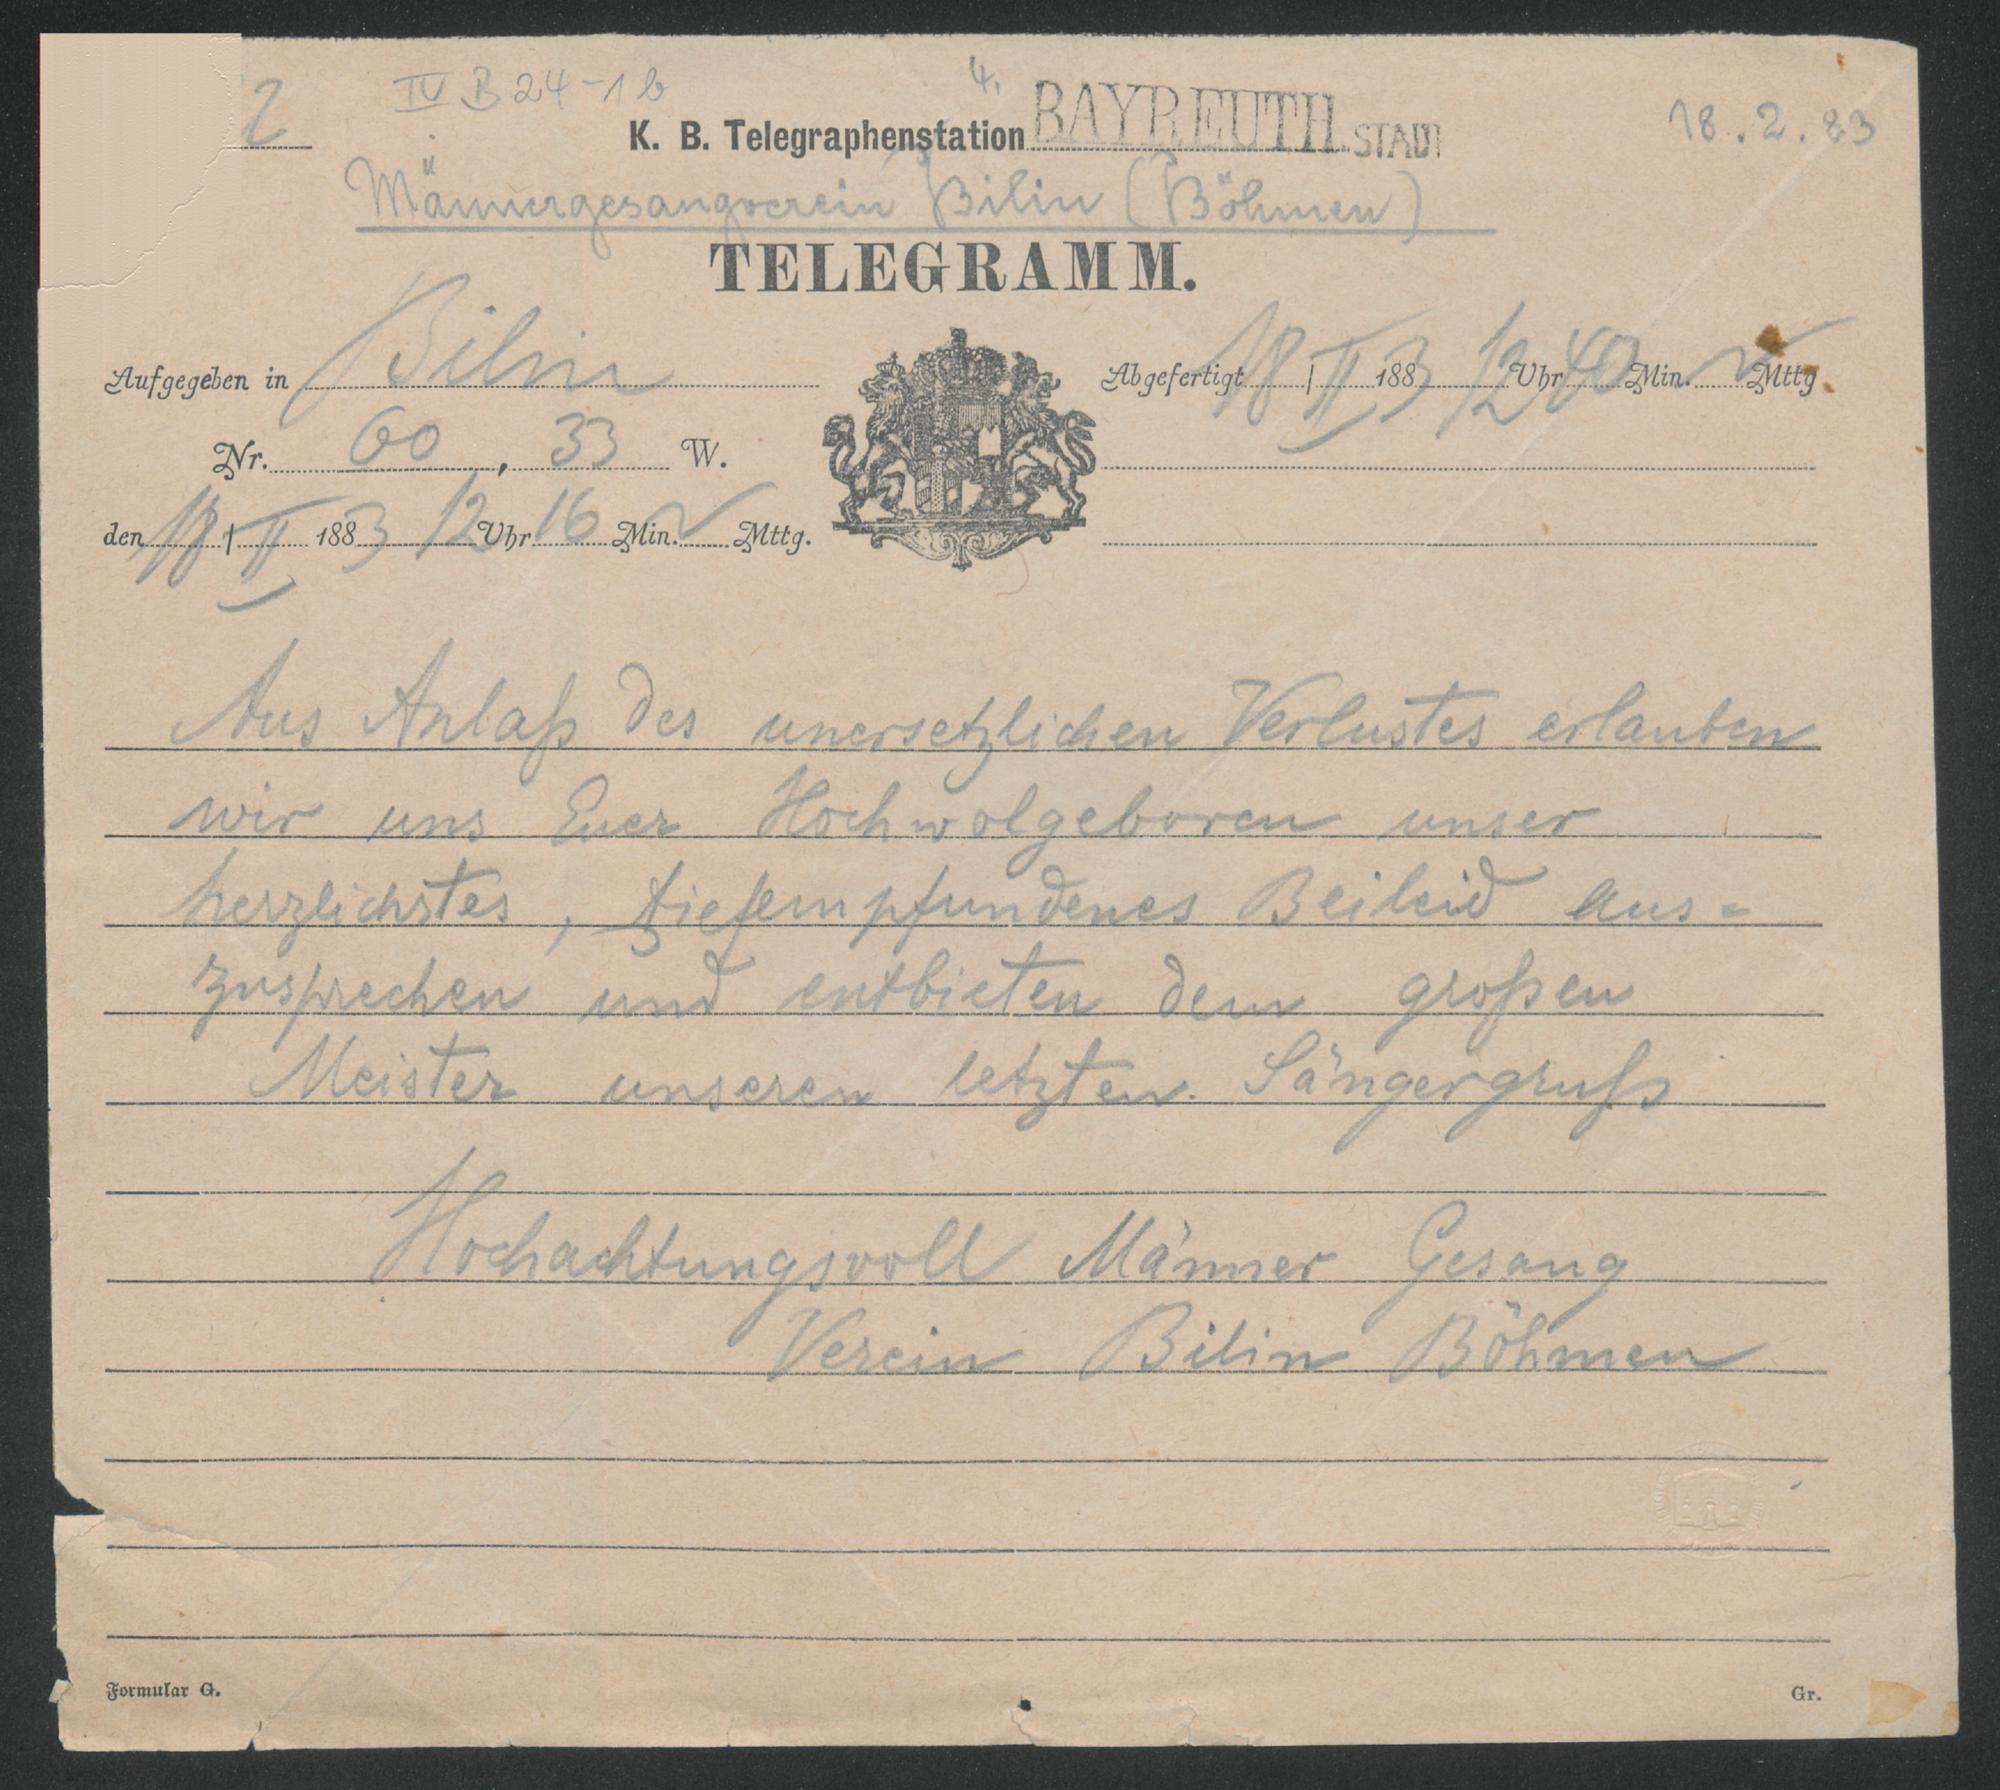 2
IV B 24-1b
4.
K. B. Telegraphenstation BAYREUTH STADT
18.2.83
Männergesangverein Bilin (Böhmen)
TELEGRAMM.
Aufgegeben in Bilin
Nr. 60, 33 W.
den 18/II 1883 12 Uhr 16 Min. Mttg.
Abgefertigt 18/II 1883 12 Uhr 40 Min. Mttg.
Aus Anlaß des unersetzlichen Verlustes erlauben
wir uns Euer Hochwolgeboren unser
herzlichstes, tiefempfundenes Beileid aus=
zusprechen und entbieten dem großen
Meister unseren letzten Sängergruß
Hochachtungsvoll Männer Gesang
Verein Bilin Böhmen
Formular G.
Gr.